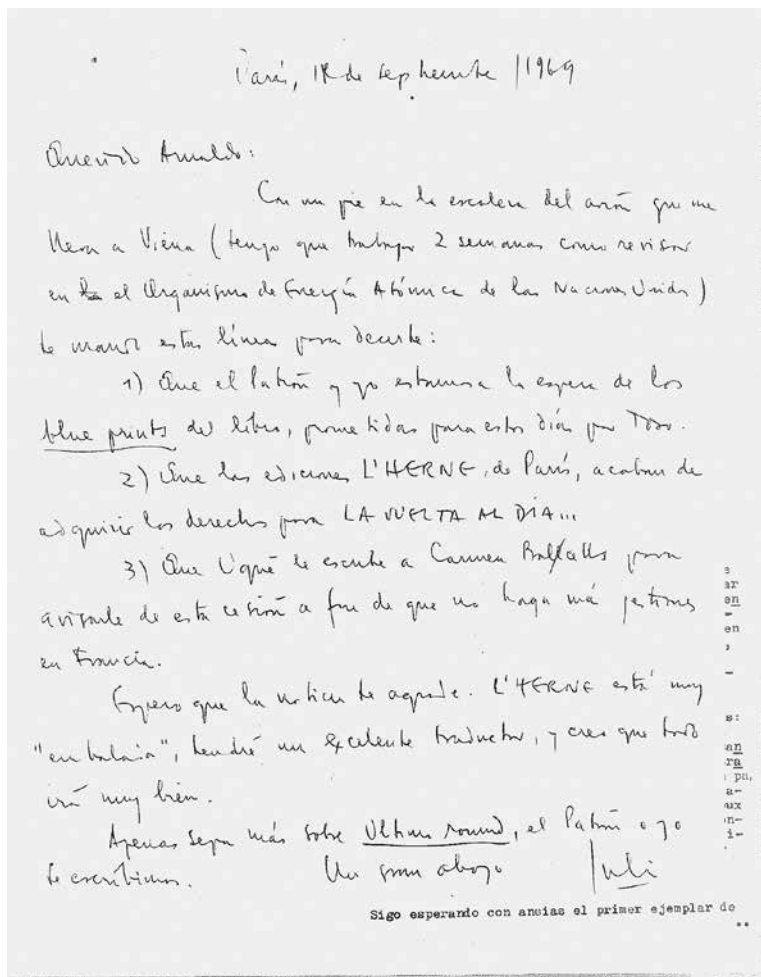 París, 1 de septiembre / 1969
Querido Arnaldo:
Con un pie en la escalera del avión que me
lleva a Viena (tengo que trabajar 2 semanas como revisor
en el Organismo de Energía Atómica de las Naciones Unidas)
te mando estas líneas para decirte:
1) Que el Patrón y yo estamos a la espera de los
blue prints del libro, prometidas para estos días por Toso.
2) Que las ediciones L'HERNE, de París, acaban de
adquirir los derechos para LA VUELTA AL DÍA...
3) Que Ugné le escribe a Carmen Balcells para
avisarle de esta cesión a fin de que no haga más gestiones
en Francia.
Espero que la noticia te agrade. L'HERNE está muy
"embalada", tendré un excelente traductor, y creo que todo
irá muy bien.
Apenas sepa más sobre Ultimo round, el Patrón o yo
te escribimos. Un gran abrazo
Julio
Sigo esperando con ansias el primer ejemplar de
..
s
ar
en
-
en
,
-
s:
an
ra
pa,
a-
aux
in-
i-